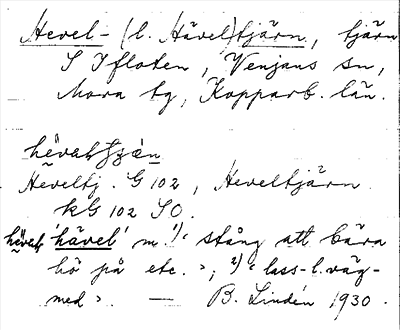 Hevel- (l. Hävel)tjärn, tjärn
S Ifloten, Venjans sn,
Mora tg, Kopparb. län.
Heveltj. G 102, Heveltjärn.
KG 102 SO.
'hävel' m. 1) "stång att bära
hö på etc.", 2) "lass- l. väg-
med". — B. Lindén 1930.